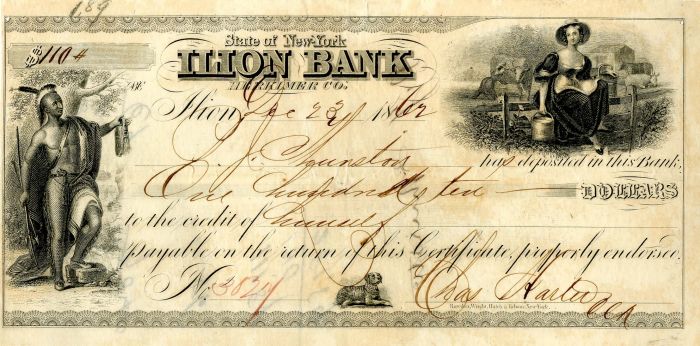 189
$110
State of New-York
ILION BANK
HERKIMER CO.
Ilion, Dec 23 1862
has deposited in this Bank
One hundred & ten DOLLARS
to the credit of himself
payable on the return of this Certificate, properly endorsed.
No.
Chas Harter
Rawdon, Wright, Hatch & Edson, New-York.